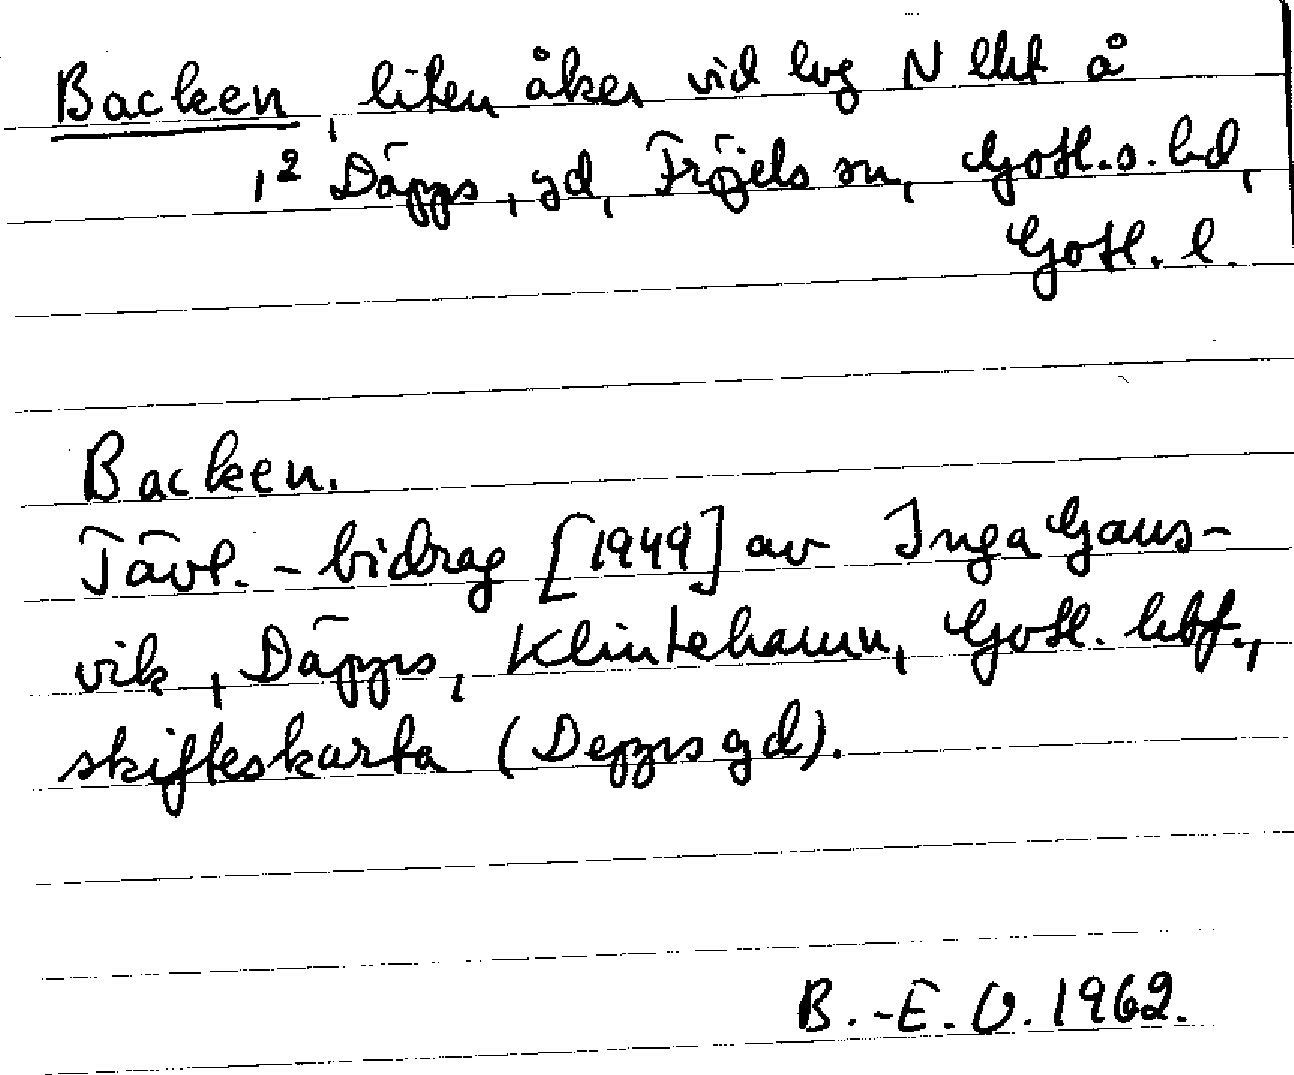 Backen, liten åker vid lvg N
1² Däpps, gd, Fröjels sn, Gotl. s. hd,
Gotl. l.
Backen.
Tävl.-bidrag [1949] av Inga Gans-
vik, Däpps, Klintehamn, Gotl. lbf.,
skifteskarta (Depps gd).
B.-E. O. 1962.